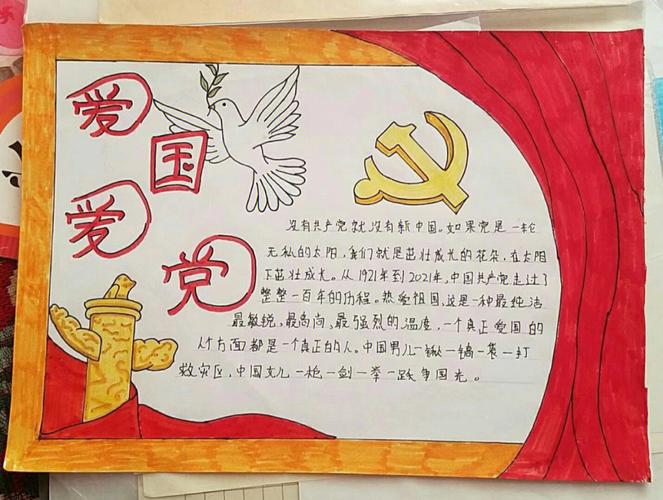 爱
国
爱
党
没有共产党就没有新中国。如果党是一轮
无私的太阳，我们就是茁壮成长的花朵，在太阳
下茁壮成长。从1921年到2021年，中国共产党走过了
整整一百年的历程。热爱祖国，这是一种最纯洁
最敏锐，最高尚，最强烈的温度，一个真正爱国的
人个方面都是一个真正的人。中国男儿一锹一镐一袋一打
救灾区，中国女儿一枪一剑一拳一跃争国光。